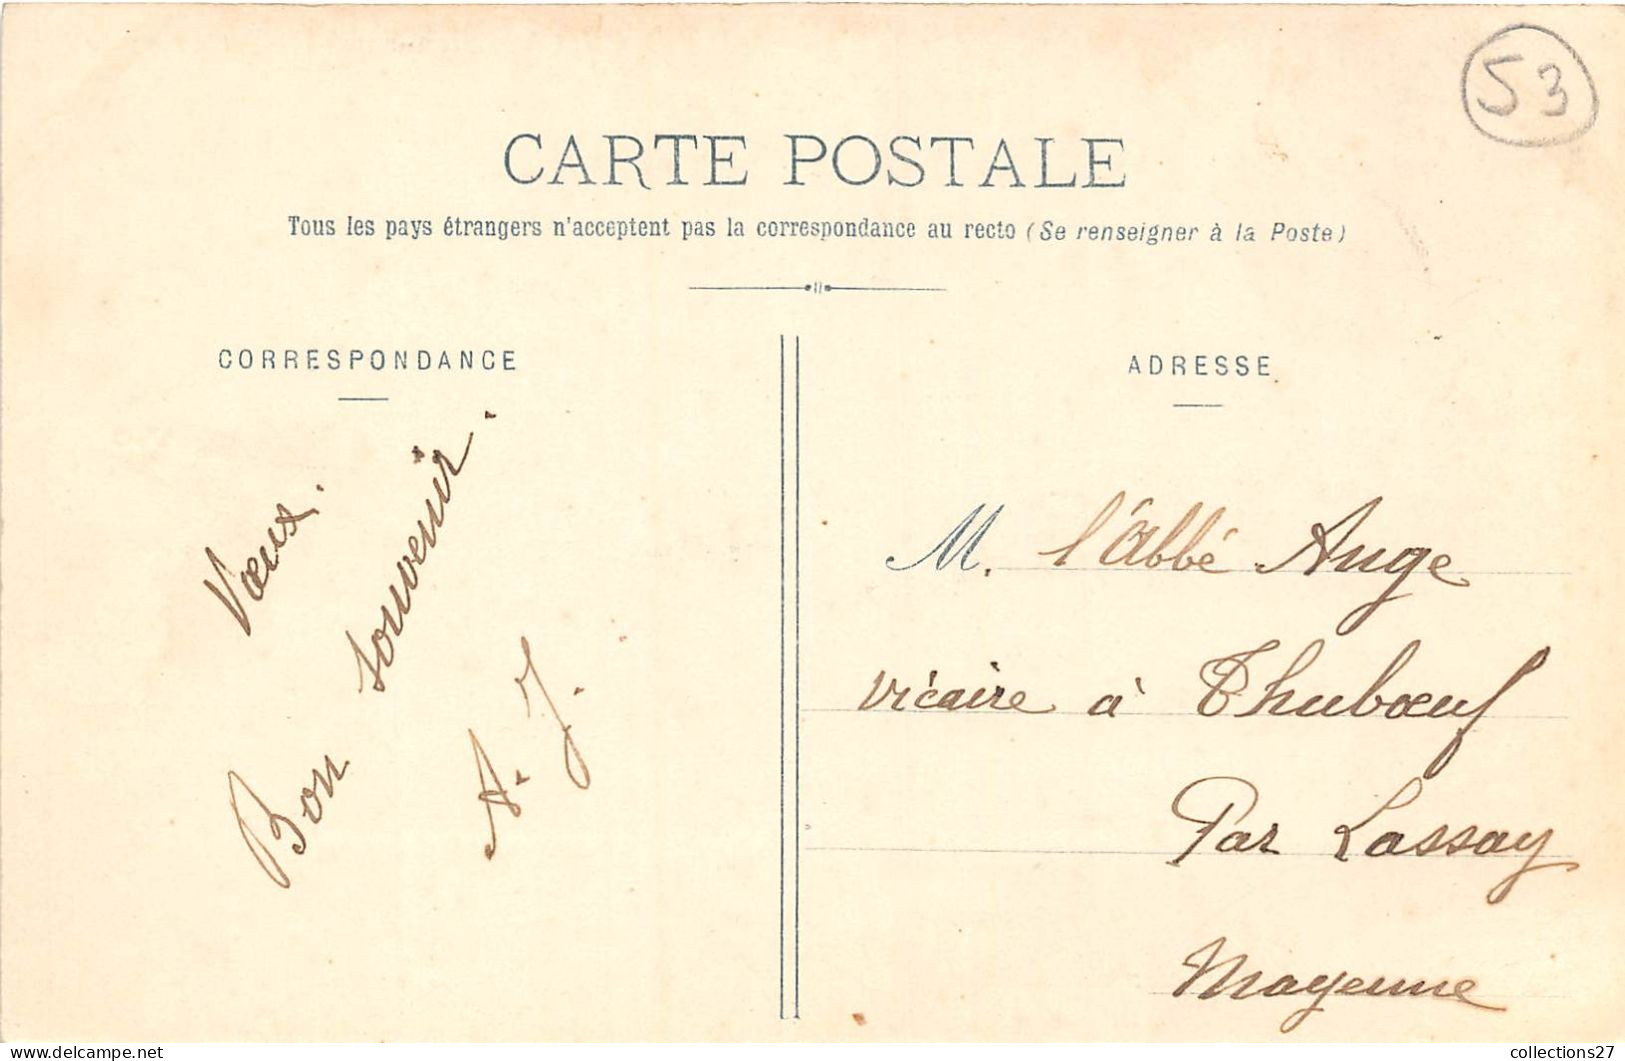 53
CARTE POSTALE
Tous les pays étrangers n'acceptent pas la correspondance au recto (Se renseigner à la Poste)
CORRESPONDANCE
Vœux.
Bon souvenir.
A. J.
ADRESSE
M. l'Abbé Auge
vicaire à Thubœuf
Par Lassay
Mayenne
collections27